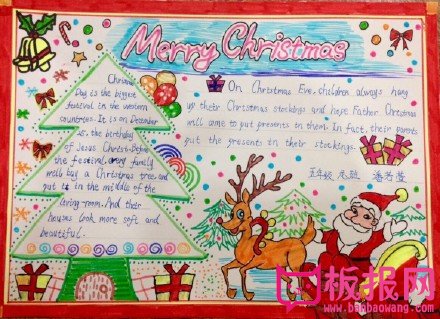 Merry Christmas
Christmas
Day is the biggest
festival in the western
countries. It is on December
is the birthday
of Jesus Christ. Before
the festival, every family
will buy a Christmas tree and
put it in the middle of the
living-room. And their
houses look more soft and
beautiful.
On Christmas Eve, children always hang
up their Christmas stockings and hope Father Christmas
will come to put presents in them. In fact, their parents
put the presents in their stockings.
五年级
板报网
www.banbaowang.com